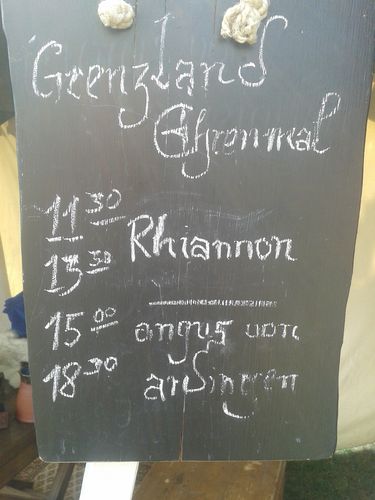 Grenzland
Ehrenmal
11 30
Rhiannon
13 30
15 00 angus von
18 30 ardingen